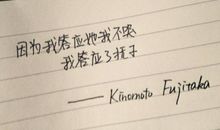 因为我答应她我不哭
我答应了桂子
—— Kinomoto Fujitaka